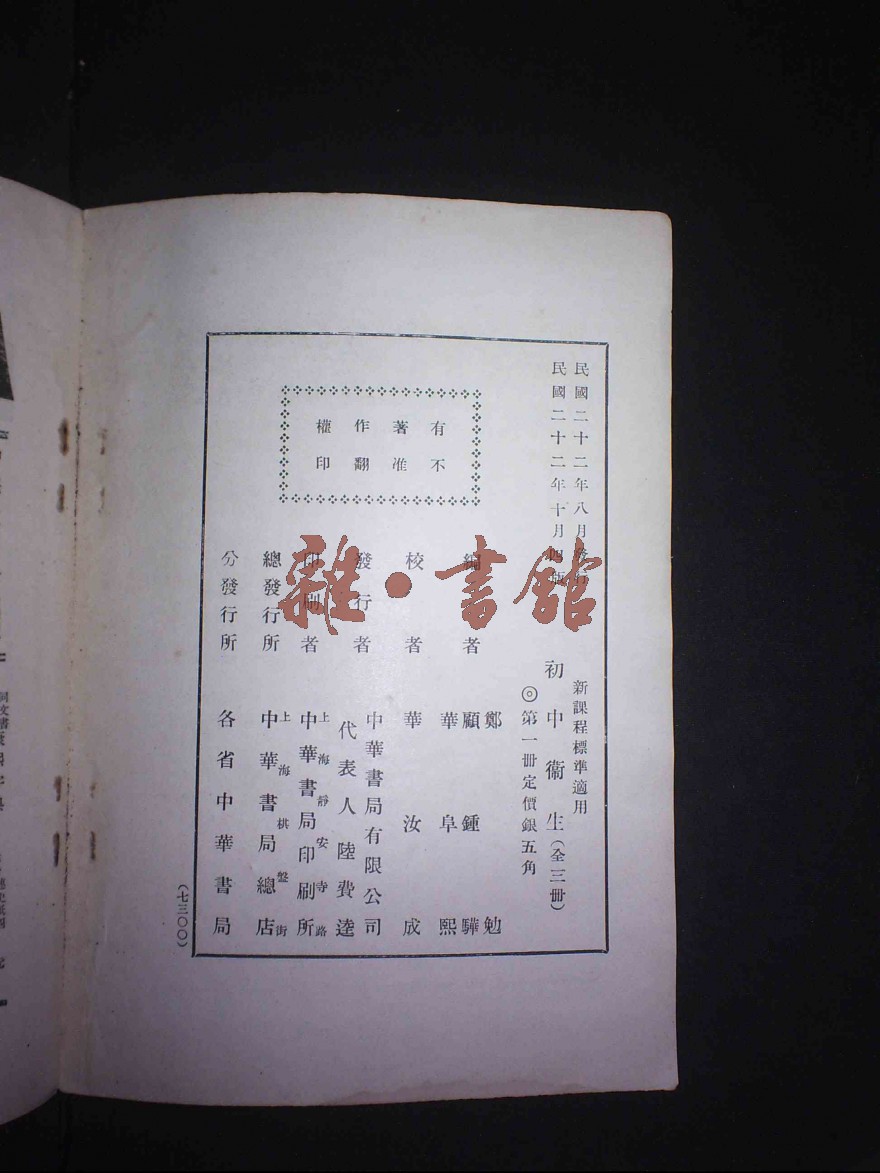 民國二十二年八月發行
民國二十二年十月四版
新課程標準適用
初中衞生（全三冊）
◎第一冊定價銀五角
有著作權
不准翻印
編者
鄭勉
顧鍾驊
華阜熙
校者
華汝成
發行者
中華書局有限公司
代表人陸費逵
印刷者
上海靜安寺路
中華書局印刷所
總發行所
上海棋盤街
中華書局總店
分發行所
各省中華書局
（七三〇〇）
雜·書館